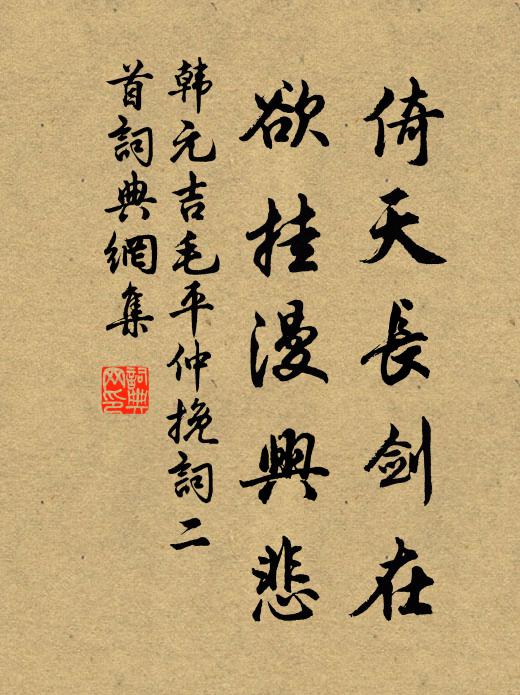 倚天長劍在
欲挂漫興悲
韩元吉毛平仲挽詞二
首詞典網集
詞典
网印